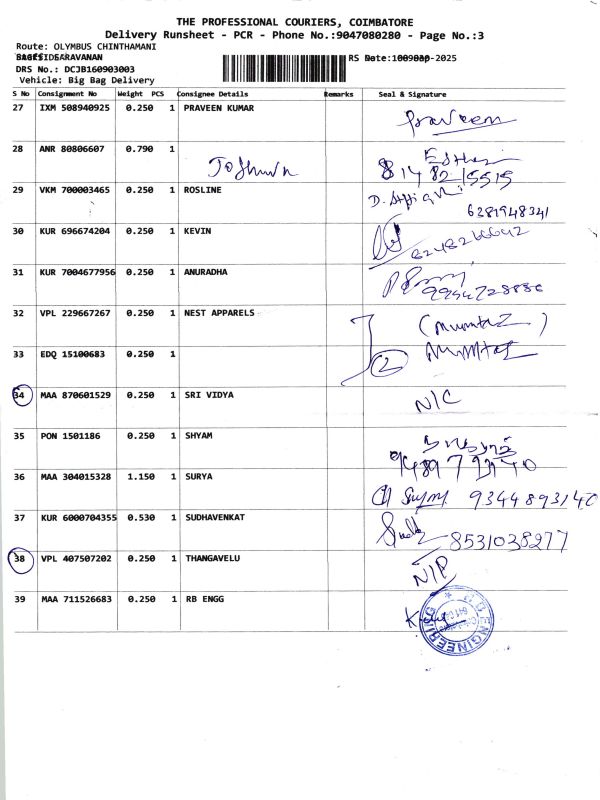 THE PROFESSIONAL COURIERS, COIMBATORE
Delivery Runsheet - PCR - Phone No.:9047080280 - Page No.:3
Route: OLYMBUS CHINTHAMANI
SARAVANAN
RS Date: -2025
DRS No.: DCJB160903003
Vehicle: Big Bag Delivery
S No Consignment No Weight PCS Consignee Details Remarks Seal & Signature
27 IXM 508940925 0.250 1 PRAVEEN KUMAR Praveen
28 ANR 80806607 0.790 1 Joshuva
29 VKM 700003465 0.250 1 ROSLINE 6281948341
30 KUR 696674204 0.250 1 KEVIN
31 KUR 7004677956 0.250 1 ANURADHA
32 VPL 229667267 0.250 1 NEST APPARELS (Mumtaz)
33 EDQ 15100683 0.250 1 2 Mumtaz
34 MAA 870601529 0.250 1 SRI VIDYA N/C
35 PON 1501186 0.250 1 SHYAM
36 MAA 304015328 1.150 1 SURYA 9344893140
37 KUR 6000704355 0.530 1 SUDHAVENKAT 8531038277
38 VPL 407507202 0.250 1 THANGAVELU N/P
39 MAA 711526683 0.250 1 RB ENGG